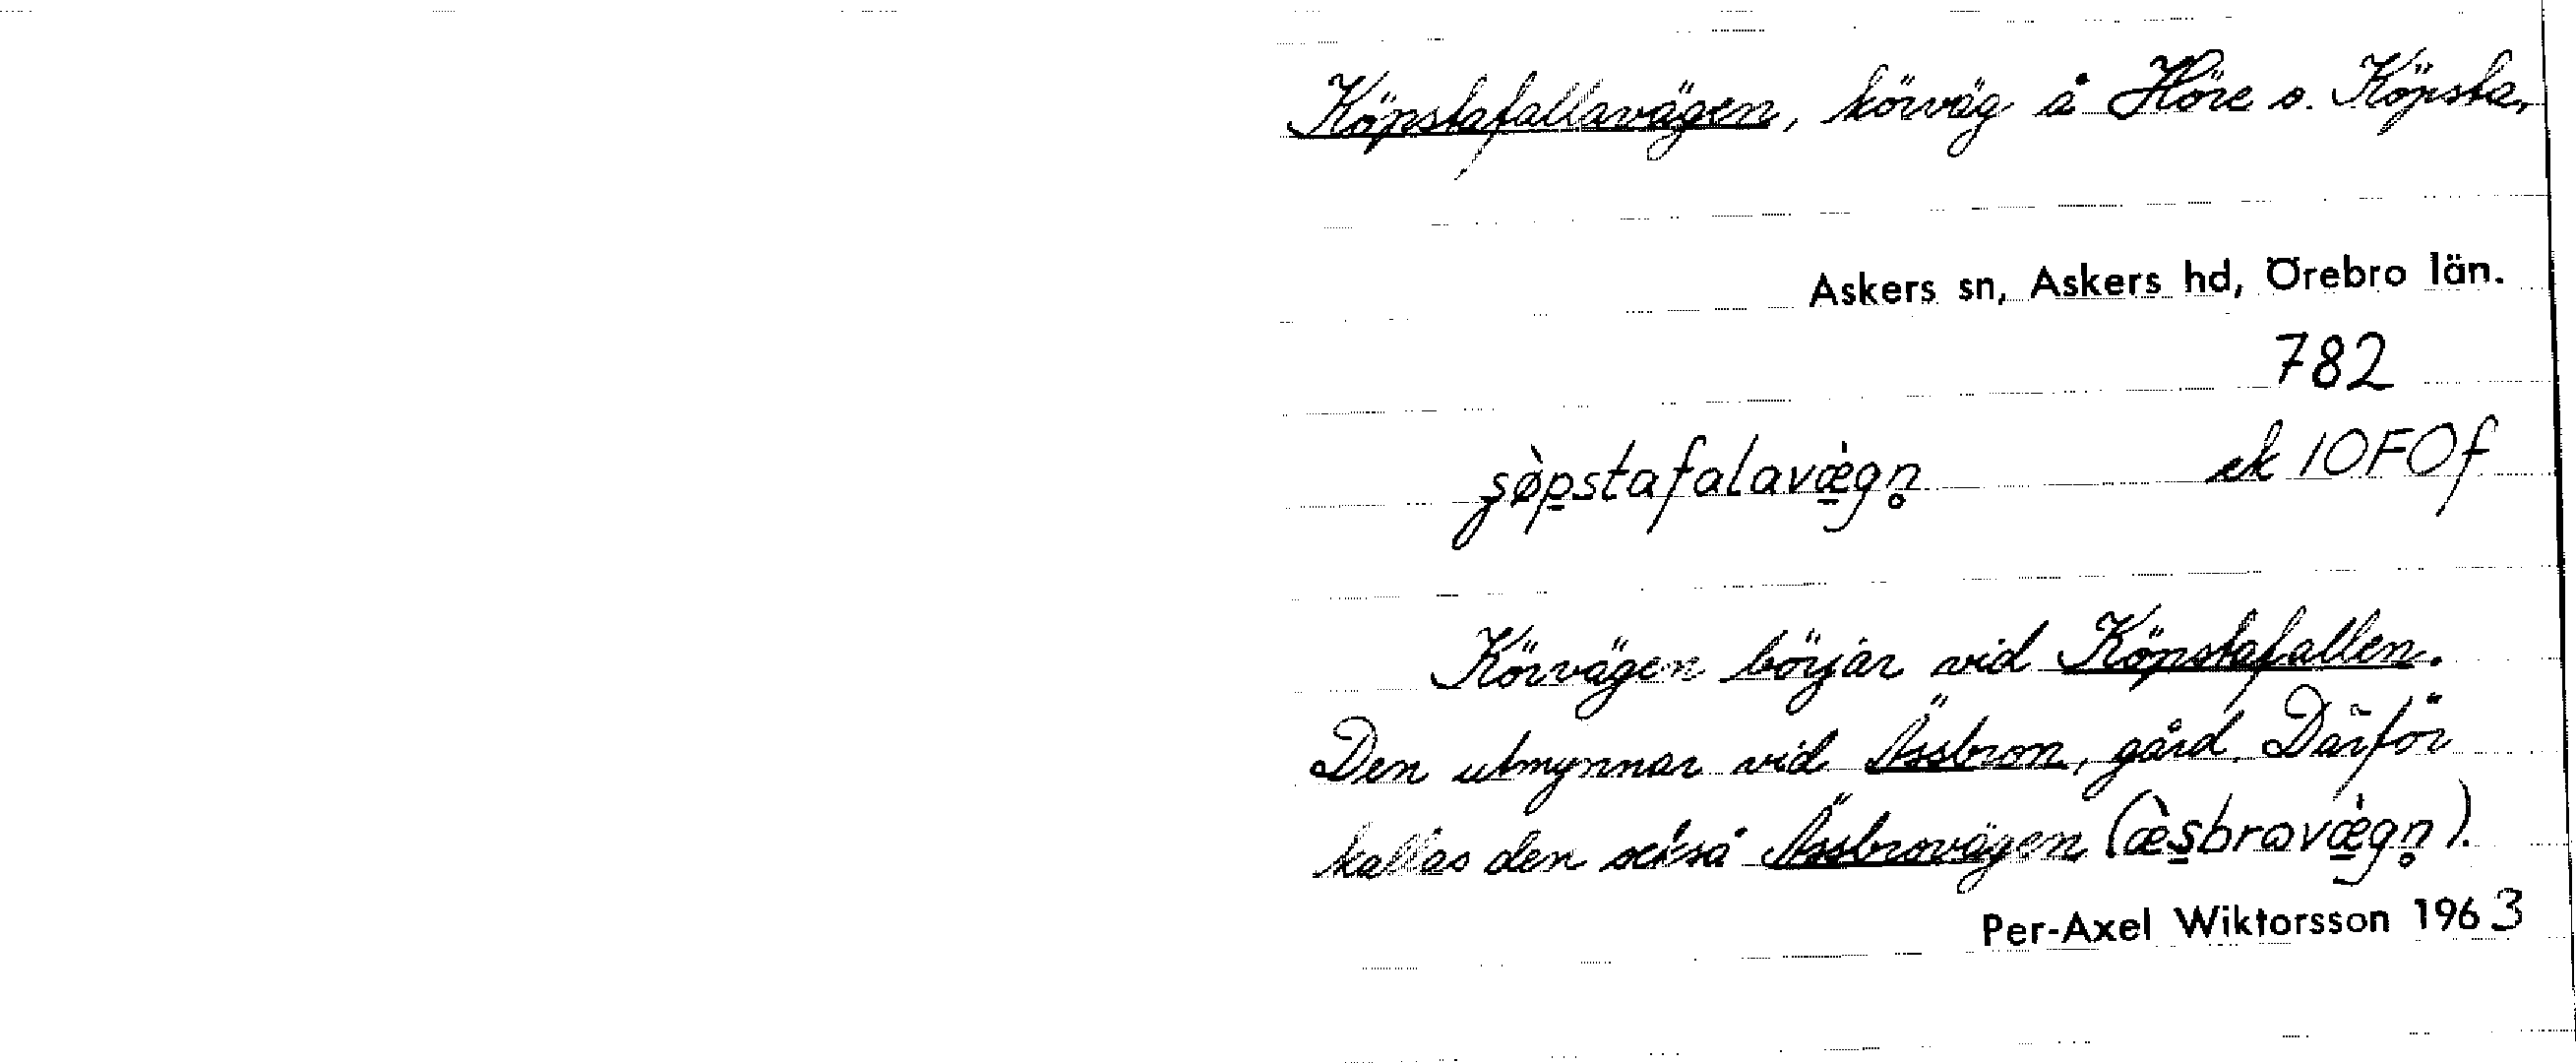 Köpstafallavägen, körväg å Höre o. Köpsta,
Askers sn, Askers hd, Örebro län.
782
ʂø̀p̠stafalavæ̠̀gn̥ ek 10F0f
Körvägen börjar vid Köpstafallen.
Den utmynnar vid Ässbron, gård. Därför
kallas den också Ässbrovägen (æ̀s̠brovæ̠̀gn̥).
Per-Axel Wiktorsson 1963